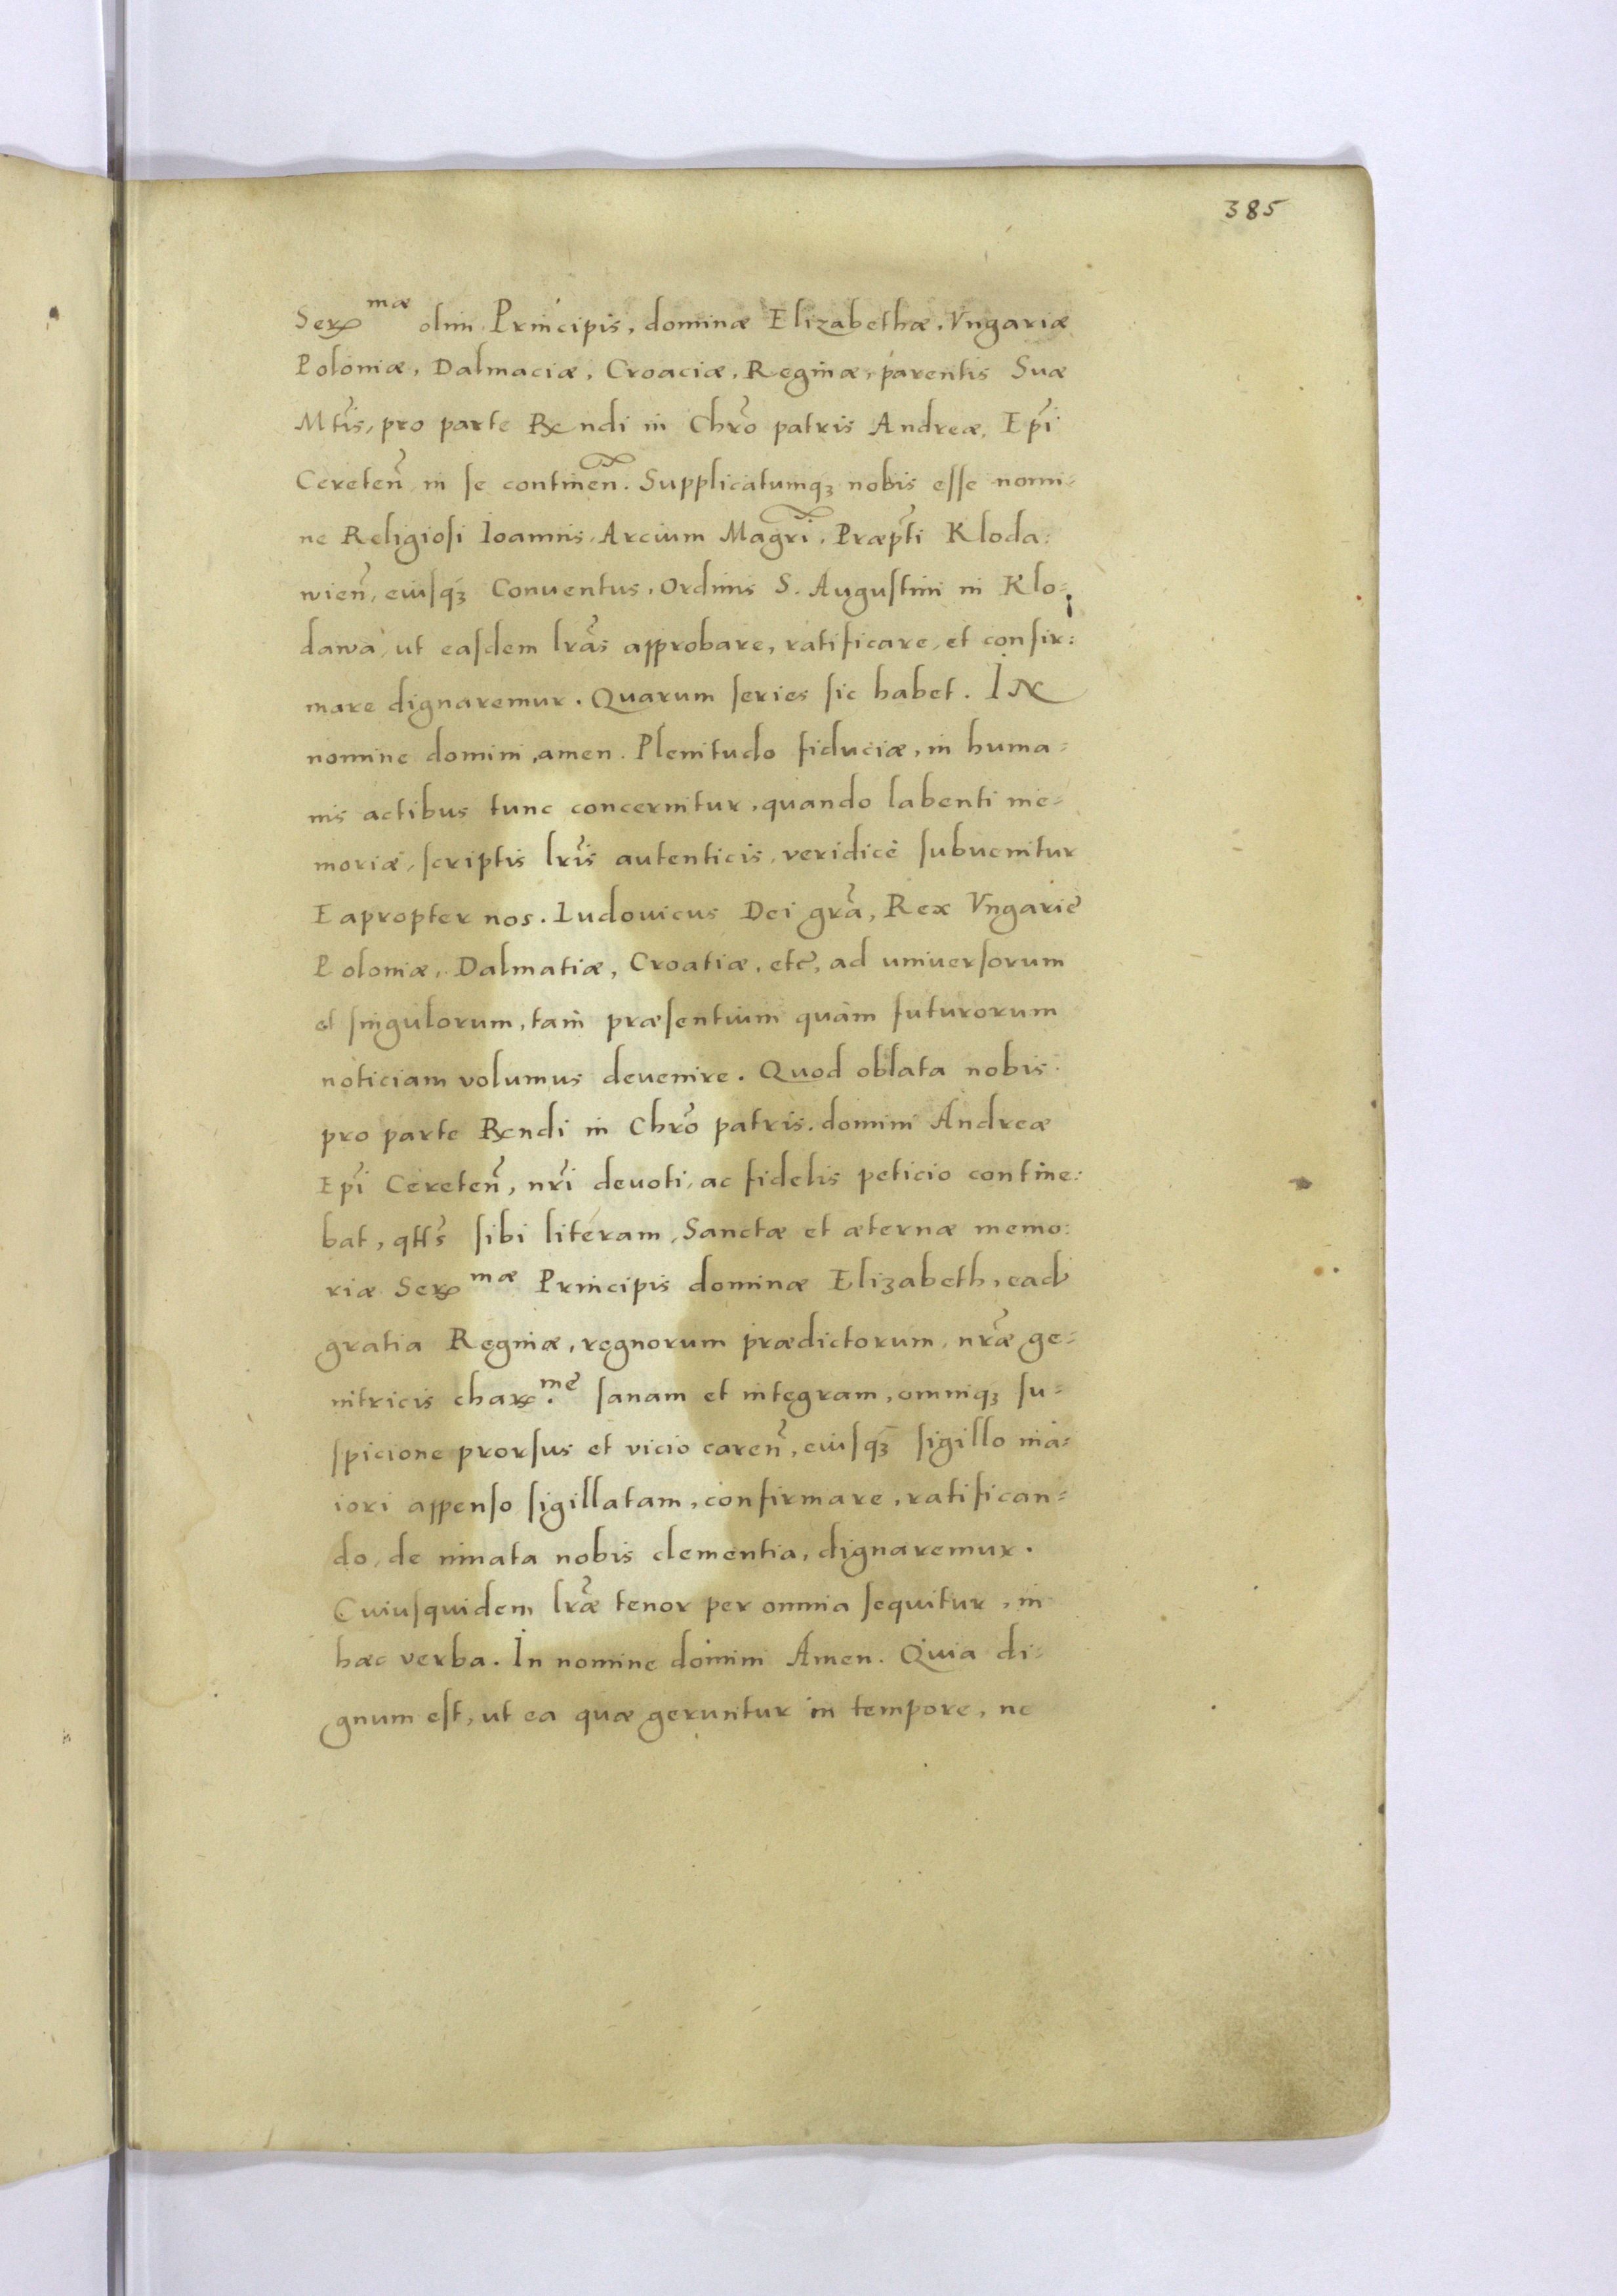 385
Ser^mæ olim Principis, dominæ Elizabethæ, Vngariæ
Poloniæ, Dalmaciæ, Croaciæ, Reginæ, parentis Suæ
Mtis, pro parte Rendi in Chro patris Andreæ, Epi
Cereten in se continen. Supplicatumqꝫ nobis esse nomi=
ne Religiosi Ioannis, Arcium Magri, Præpti Kloda:
wien, eiusqꝫ Conuentus, Ordinis S. Augustini in Klo=
dawa, ut easdem lras approbare, ratificare, et confir:
mare dignaremur. Quarum series sic habet. IN
nomine domini, amen. Plenitudo fiduciæ, in huma=
nis actibus tunc concernitur, quando labenti me=
moriæ, scriptis lris autenticis, veridicè subuenitur
Eapropter nos. Ludouicus Dei gra, Rex Vngarie
Poloniæ, Dalmatiæ, Croatiæ, etc, ad uniuersorum
et singulorum, tam præsentium quàm futurorum
noticiam volumus deuenire. Quod oblata nobis
pro parte Rendi in Chro patris, domini Andreæ
Epi Cereten, nri deuoti, ac fidelis peticio contine:
bat, qtts sibi literam, Sanctæ et æternæ memo:
riæ Ser^mæ Principis dominæ Elizabeth, ead
gratia Reginæ, regnorum prædictorum, nræ ge=
nitricis char^me sanam et integram, omniqꝫ su=
spicione prorsus et vicio caren, eiusqꝫ sigillo ma=
iori appenso sigillatam, confirmare, ratifican=
do, de innata nobis clementia, dignaremur.
Cuiusquidem lræ tenor per omnia sequitur, in
hæc verba. In nomine domini Amen. Quia di=
gnum est, ut ea quæ geruntur in tempore, ne